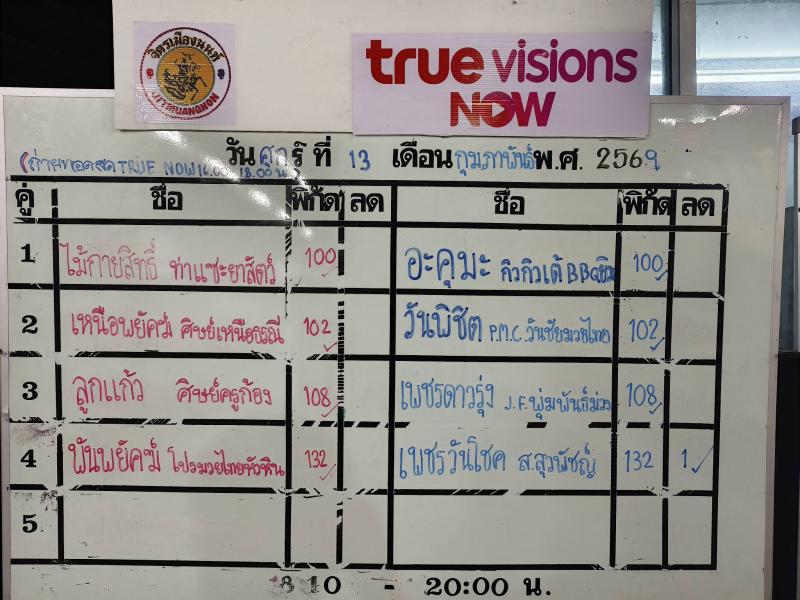 จิตรเมืองนนท์
JITMUANGNON
true visions
NOW
วัน ศุกร์ ที่ 13 เดือน กุมภาพันธ์ พ.ศ. 2569
(ถ่ายทอดสด TRUE NOW 16.00 - 18.00 น.)
คู่ ชื่อ พิกัด ลด ชื่อ พิกัด ลด
1 ไม้กายสิทธิ์ ท่าแซะยาสัตว์ 100 อะคุมะ กิวกิวเต้ 100
2 เหนือพยัคฆ์ ศิษย์เหนือธรณี 102 วันพิชิต P.M.C. วันชัยมวยไทย 102
3 ลูกแก้ว ศิษย์ครูก้อง 108 เพชรดาวรุ่ง J.F. พุ่มพันธ์ม่วง 108
4 พันพยัคฆ์ โปรมวยไทยหัวหิน 132 เพชรวันโชค ส.สุวพิชญ์ 132 1
5
18 10 - 20:00 น.